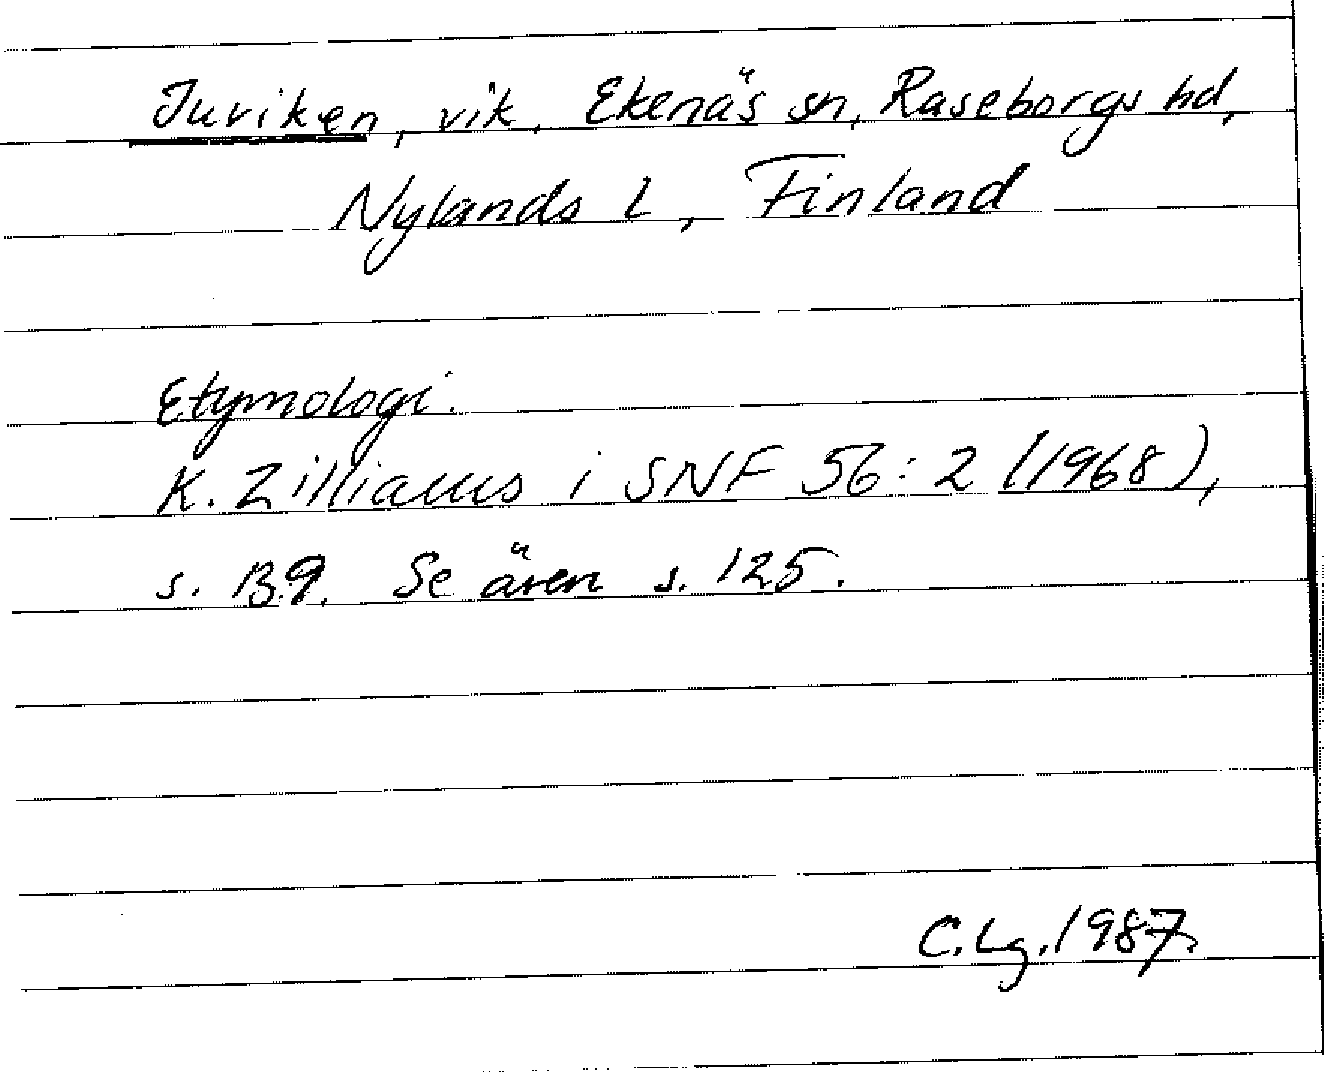 Juviken, vik, Ekenäs sn, Raseborgs hd,
Nylands l, Finland
Etymologi.
K. Zilliacus i SNF 56:2 (1968),
s. 139. Se även s. 125.
C. Lg. 1987.